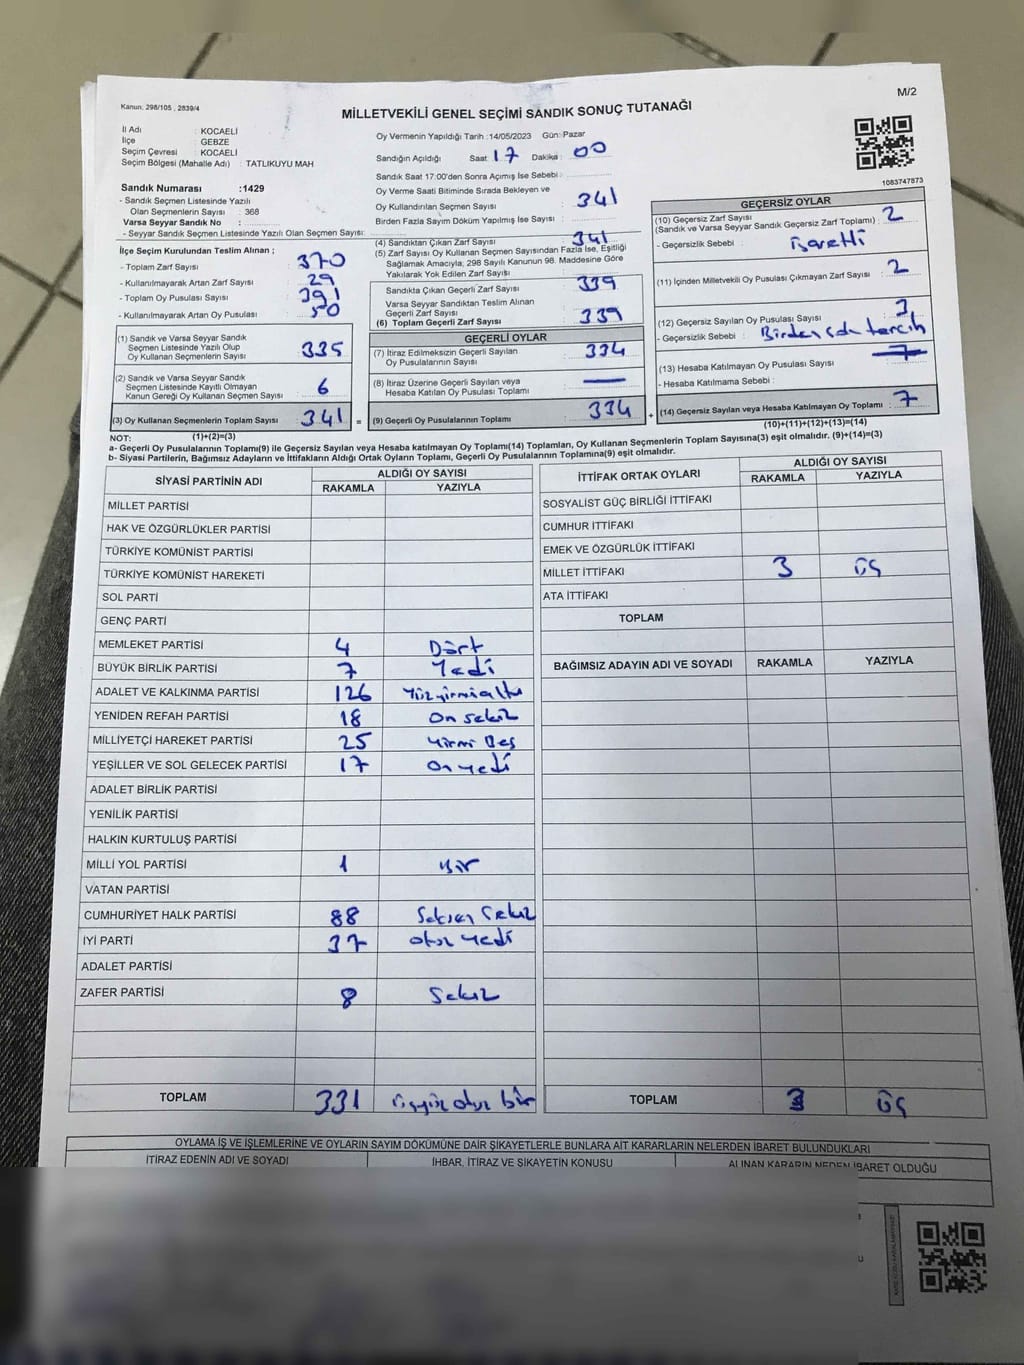 Kanun: 298/105 , 2839/4
M/2
MİLLETVEKİLİ GENEL SEÇİMİ SANDIK SONUÇ TUTANAĞI
İl Adı : KOCAELİ
İlçe : GEBZE
Seçim Çevresi : KOCAELİ
Seçim Bölgesi (Mahalle Adı) : TATLIKUYU MAH
Sandık Numarası :1429
- Sandık Seçmen Listesinde Yazılı
Olan Seçmenlerin Sayısı : 368
Varsa Seyyar Sandık No :
- Seyyar Sandık Seçmen Listesinde Yazılı Olan Seçmen Sayısı:
Oy Vermenin Yapıldığı Tarih :14/05/2023 Gün: Pazar
Sandığın Açıldığı Saat 17 Dakika : 00
Sandık Saat 17:00'den Sonra Açılmış İse Sebebi :
Oy Verme Saati Bitiminde Sırada Bekleyen ve
Oy Kullandırılan Seçmen Sayısı : 341
Birden Fazla Sayım Döküm Yapılmış İse Sayısı :
1083747873
İlçe Seçim Kurulundan Teslim Alınan ;
- Toplam Zarf Sayısı : 370
- Kullanılmayarak Artan Zarf Sayısı : 29
- Toplam Oy Pusulası Sayısı : 391
- Kullanılmayarak Artan Oy Pusulası : 50
(1) Sandık ve Varsa Seyyar Sandık
Seçmen Listesinde Yazılı Olup
Oy Kullanan Seçmenlerin Sayısı : 335
(2) Sandık ve Varsa Seyyar Sandık
Seçmen Listesinde Kayıtlı Olmayan
Kanun Gereği Oy Kullanan Seçmen Sayısı : 6
(3) Oy Kullanan Seçmenlerin Toplam Sayısı : 341 =
(4) Sandıktan Çıkan Zarf Sayısı : 341
(5) Zarf Sayısı Oy Kullanan Seçmen Sayısından Fazla İse, Eşitliği
Sağlamak Amacıyla, 298 Sayılı Kanunun 98. Maddesine Göre
Yakılarak Yok Edilen Zarf Sayısı :
Sandıkta Çıkan Geçerli Zarf Sayısı : 339
Varsa Seyyar Sandıktan Teslim Alınan
Geçerli Zarf Sayısı
(6) Toplam Geçerli Zarf Sayısı : 339
GEÇERLİ OYLAR
(7) İtiraz Edilmeksizin Geçerli Sayılan
Oy Pusulalarının Sayısı : 334
(8) İtiraz Üzerine Geçerli Sayılan veya
Hesaba Katılan Oy Pusulası Toplamı : —
(9) Geçerli Oy Pusulalarının Toplamı : 334 +
GEÇERSİZ OYLAR
(10) Geçersiz Zarf Sayısı
(Sandık ve Varsa Seyyar Sandık Geçersiz Zarf Toplamı) : 2
- Geçersizlik Sebebi : işaretli
(11) İçinden Milletvekili Oy Pusulası Çıkmayan Zarf Sayısı : 2
(12) Geçersiz Sayılan Oy Pusulası Sayısı : 3
- Geçersizlik Sebebi : Birden çok tercih
(13) Hesaba Katılmayan Oy Pusulası Sayısı :
- Hesaba Katılmama Sebebi :
(14) Geçersiz Sayılan veya Hesaba Katılmayan Oy Toplamı : 7
(1)+(2)=(3)
(10)+(11)+(12)+(13)=(14)
NOT:
a- Geçerli Oy Pusulalarının Toplamı(9) ile Geçersiz Sayılan veya Hesaba katılmayan Oy Toplamı(14) Toplamları, Oy Kullanan Seçmenlerin Toplam Sayısına(3) eşit olmalıdır. (9)+(14)=(3)
b- Siyasi Partilerin, Bağımsız Adayların ve İttifakların Aldığı Ortak Oyların Toplamı, Geçerli Oy Pusulalarının Toplamına(9) eşit olmalıdır.
SİYASİ PARTİNİN ADI ALDIĞI OY SAYISI
RAKAMLA YAZIYLA
MİLLET PARTİSİ
HAK VE ÖZGÜRLÜKLER PARTİSİ
TÜRKİYE KOMÜNİST PARTİSİ
TÜRKİYE KOMÜNİST HAREKETİ
SOL PARTİ
GENÇ PARTİ
MEMLEKET PARTİSİ 4 Dört
BÜYÜK BİRLİK PARTİSİ 7 Yedi
ADALET VE KALKINMA PARTİSİ 126 Yüzyirmialtı
YENİDEN REFAH PARTİSİ 18 On sekiz
MİLLİYETÇİ HAREKET PARTİSİ 25 Yirmi Beş
YEŞİLLER VE SOL GELECEK PARTİSİ 17 On yedi
ADALET BİRLİK PARTİSİ
YENİLİK PARTİSİ
HALKIN KURTULUŞ PARTİSİ
MİLLİ YOL PARTİSİ 1 Bir
VATAN PARTİSİ
CUMHURİYET HALK PARTİSİ 88 Seksen Sekiz
İYİ PARTİ 37 otuz yedi
ADALET PARTİSİ
ZAFER PARTİSİ 8 Sekiz
TOPLAM 331 üçyüz otuz bir
İTTİFAK ORTAK OYLARI ALDIĞI OY SAYISI
RAKAMLA YAZIYLA
SOSYALİST GÜÇ BİRLİĞİ İTTİFAKI
CUMHUR İTTİFAKI
EMEK VE ÖZGÜRLÜK İTTİFAKI
MİLLET İTTİFAKI 3 üç
ATA İTTİFAKI
TOPLAM
BAĞIMSIZ ADAYIN ADI VE SOYADI RAKAMLA YAZIYLA
TOPLAM 3 üç
OYLAMA İŞ VE İŞLEMLERİNE VE OYLARIN SAYIM DÖKÜMÜNE DAİR ŞİKAYETLERLE BUNLARA AİT KARARLARIN NELERDEN İBARET BULUNDUKLARI
İTİRAZ EDENİN ADI VE SOYADI İHBAR, İTİRAZ VE ŞİKAYETİN KONUSU ALINAN KARARIN NEDEN İBARET OLDUĞU